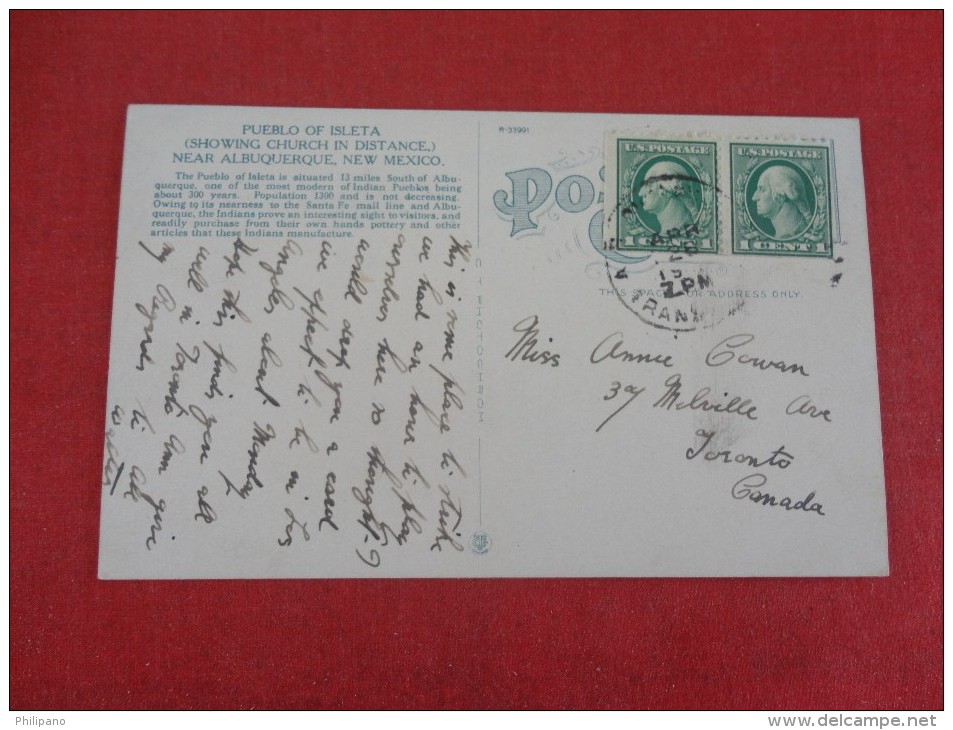 PUEBLO OF ISLETA
(SHOWING CHURCH IN DISTANCE,)
NEAR ALBUQUERQUE, NEW MEXICO.
The Pueblo of Isleta is situated 13 miles South of Albu-
querque, one of the most modern of Indian Pueblos being
about 300 years. Population 1300 and is not decreasing.
Owing to its nearness to the Santa Fe mail line and Albu-
querque, the Indians prove an interesting sight to visitors, and
readily purchase from their own hands pottery and other
articles that these Indians manufacture.
This is some place to strike
we had an hour to play
ourselves here so thought I
would drop you a card
we expect to be in Los
Angeles about Monday
Hope this finds you all
well in Toronto Ann give
my Regards to all
Walter
R-33991
POS
C
U.S. POSTAGE
1 CENT 1
U.S. POSTAGE
1 CENT 1
ARR
PM
TRAN
THIS SPACE FOR ADDRESS ONLY.
Miss Annie Cowan
37 Melville Ave
Toronto
Canada
C T PHOTOCHROM
Philipano
www.delcampe.net